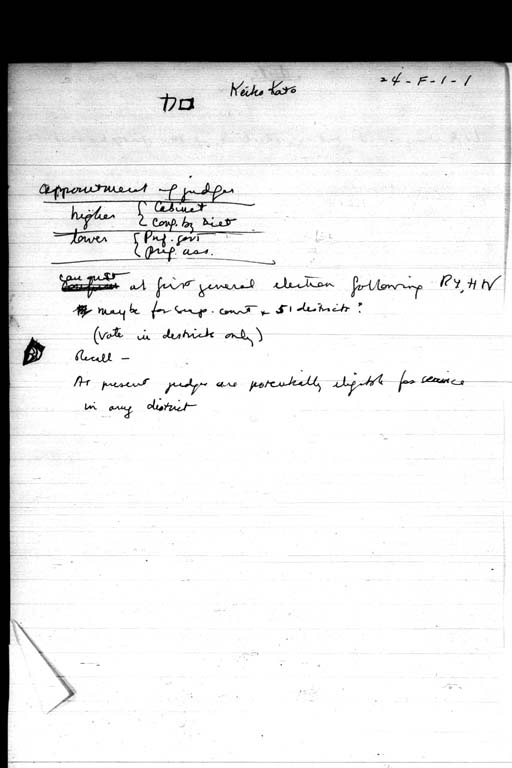 24-F-1-1
Keiko Kato
カロ
appointment of judges
higher { Cabinet
Conf. by Diet
lower { Pref. gov.
Pref. ass.
at first general election following RY, HN
maybe for sup. court & 51 districts?
(vote in districts only)
Recall –
At present judges are potentially eligible for service
in any district